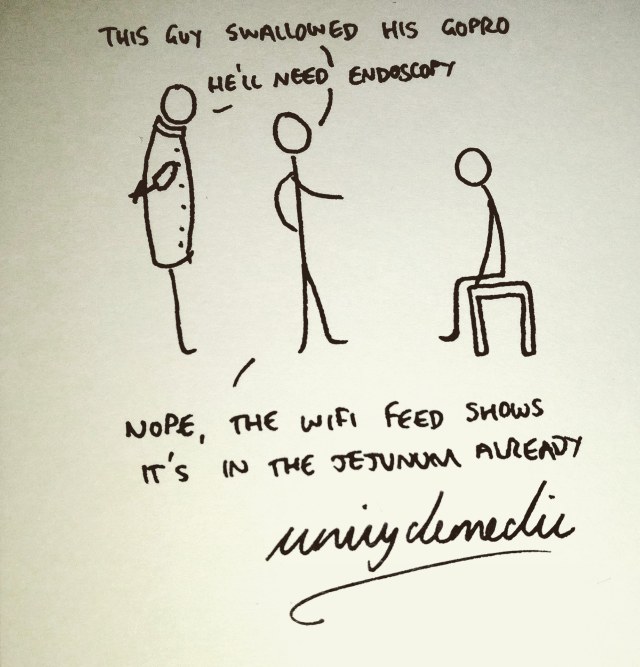 THIS GUY SWALLOWED HIS GOPRO
HE'LL NEED ENDOSCOPY
NOPE, THE WIFI FEED SHOWS
IT'S IN THE JEJUNUM ALREADY
unicydemedic